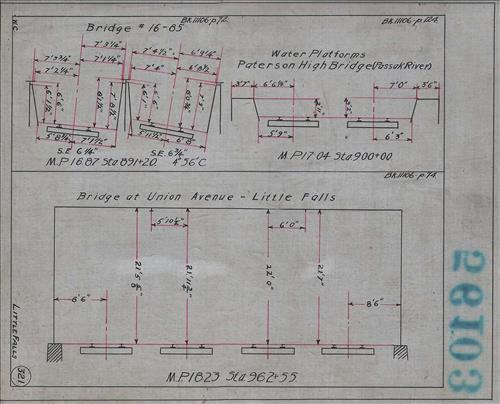 Bridge # 16-85
BK.11106-p.72.
BK.11106-p.124.
W.K.C.
7'3¼"
7'3¾"
7'2¼"
7'1¼"
7'4½"
6'9¼"
7'6"
6'8½"
5'8¾"
7'1½"
5'11½"
6'8"
S.E. 6¼"
S.E. 6¾"
M.P. 16.87 Sta. 891+20 4°56'C
Water Platforms
Paterson High Bridge (Passaic River)
3'7"
6'6¼"
7'0"
3'6"
2'2"
5'9"
6'3"
M.P. 17.04 Sta. 900+00
BK.11106-p.74.
Bridge at Union Avenue - Little Falls
5'10½"
6'0"
21'11½"
22'0"
21'7"
8'6"
8'6"
M.P. 18.23 Sta. 962+55
LITTLE FALLS
321
26103